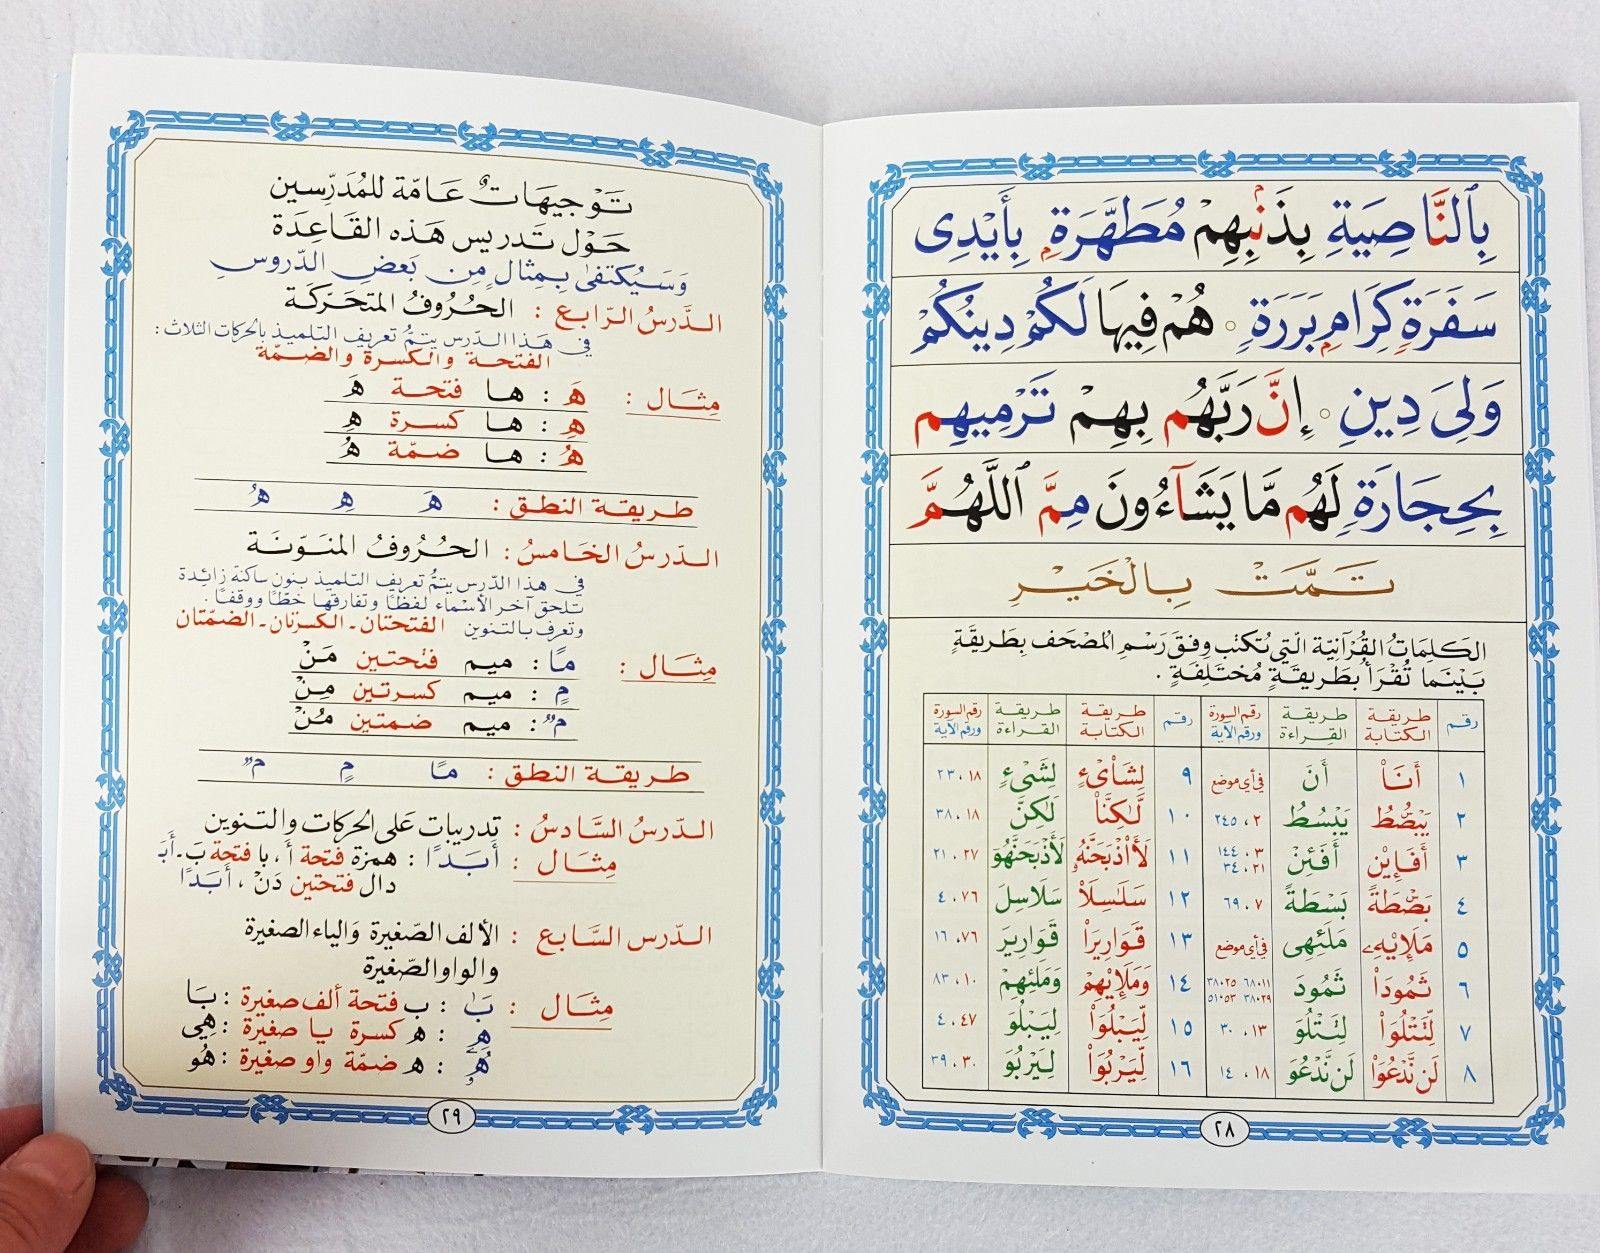 بِٱلنَّاصِيَةِ بِذَنۢبِهِمْ مُطَهَّرَةٍۭ بِأَيْدِى
سَفَرَةٍ كِرَامٍۭ بَرَرَةٍ ○ هُمْ فِيهَا لَكُمْ دِينُكُمْ
وَلِىَ دِينِ ○ إِنَّ رَبَّهُم بِهِمْ تَرْمِيهِم
بِحِجَارَةٍ لَهُم مَّا يَشَآءُونَ مِمَّ ٱللَّهُمَّ
تَمَّتْ بِالْخَيْرِ
الكَلِمَاتُ القُرْآنِيّة الّتِي تُكتَبُ وِفقَ رَسْمِ المُصْحَف بِطَرِيقَةٍ
بَيْنَمَا تُقْرَأُ بِطَرِيقَةٍ مُخْتَلِفَةٍ .
رقم طريقة الكتابة طريقة القراءة رقم السورة ورقم الآية رقم طريقة الكتابة طريقة القراءة رقم السورة ورقم الآية
١ أَنَا۠ أَنَ في أي موضع ٩ لِشَا۟ىْءٍ لِشَىْءٍ ١٨، ٢٣
٢ يَبْصُۜطُ يَبْسُطُ ٢، ٢٤٥ ١٠ لَّٰكِنَّا۠ لَٰكِنَّ ١٨، ٣٨
٣ أَفَإِي۟ن أَفَئِنْ ٣، ١٤٤ ٢١، ٣٤ ١١ لَأَا۟ذْبَحَنَّهُۥ لَأَذْبَحَنَّهُوَ ٢٧، ٢١
٤ بَصْۜطَةً بَسْطَةً ٧، ٦٩ ١٢ سَلَٰسِلَا۟ سَلَاسِلَ ٧٦، ٤
٥ مَلَإِي۟هِۦ مَلَئِهِى في أي موضع ١٣ قَوَارِيرَا۟ قَوَارِيرَ ٧٦، ١٦
٦ ثَمُودَا۟ ثَمُودَ ١١، ٦٨ ٢٥، ٣٨ ٢٩، ٣٨ ٥٣، ٥١ ١٤ وَمَلَإِي۟هِمْ وَمَلَئِهِمْ ١٠، ٨٣
٧ لِّتَتْلُوَا۟ لِتَتْلُوَ ١٣، ٣٠ ١٥ لِّيَبْلُوَا۟ لِيَبْلُوَ ٤٧، ٤
٨ لَن نَّدْعُوَا۟ لَن نَّدْعُوَ ١٨، ١٤ ١٦ لِّيَرْبُوَا۟ لِيَرْبُوَ ٣٠، ٣٩
٢٨
تَوْجِيهَاتٌ عَامّة للمُدَرِّسين
حَوْل تَدريس هَذه القَاعِدَة
وَسَيُكتفىٰ بِمِثالٍ مِن بَعضِ الدّروسِ
الدَّرسُ الرّابع : الحُرُوفُ المتحَركَة
في هَذا الدّرسِ يتمُّ تعريف التلميذ بالحركات الثلاث :
الفتحة والكسرة والضمّة
مِثال : هَ : ها فتحة هَ
هِ : ها كسرة هِ
هُ : ها ضمّة هُ
طريقة النطق : هَ هِ هُ
الدّرسُ الخَامسُ : الحُرُوفُ المنَوّنَة
في هذا الدّرسِ يتمُّ تعريف التلميذ بنونٍ ساكنة زائدة
تلحق آخر الأسْماء لفظًا وتفارقها خطًّا ووقفًا .
وتعرف بالتنوين الفتحتان - الكسرتان - الضمّتان
مِثَال : مًا : ميم فتحتين مَنْ
مٍ : ميم كسرتين مِنْ
مٌ : ميم ضمتين مُنْ
طريقة النطق : مًا مٍ مٌ
الدّرسُ السّادسُ : تدريبات عَلى الحركات والتنوين
مِثَال : أَبَدًا : همزة فتحة أَ ، با فتحة بَ - أَبَ
دال فتحتين دَنْ ، أَبَدًا
الدّرس السَّابع : الألف الصّغيرة وَالياء الصغيرة
والواو الصّغيرة
مِثَال : بَٰ : ب فتحة ألف صغيرة : بَا
هِۦ : ه كسرة يا صغيرة : هِي
هُۥ : ه ضمّة واو صغيرة : هُو
٢٩